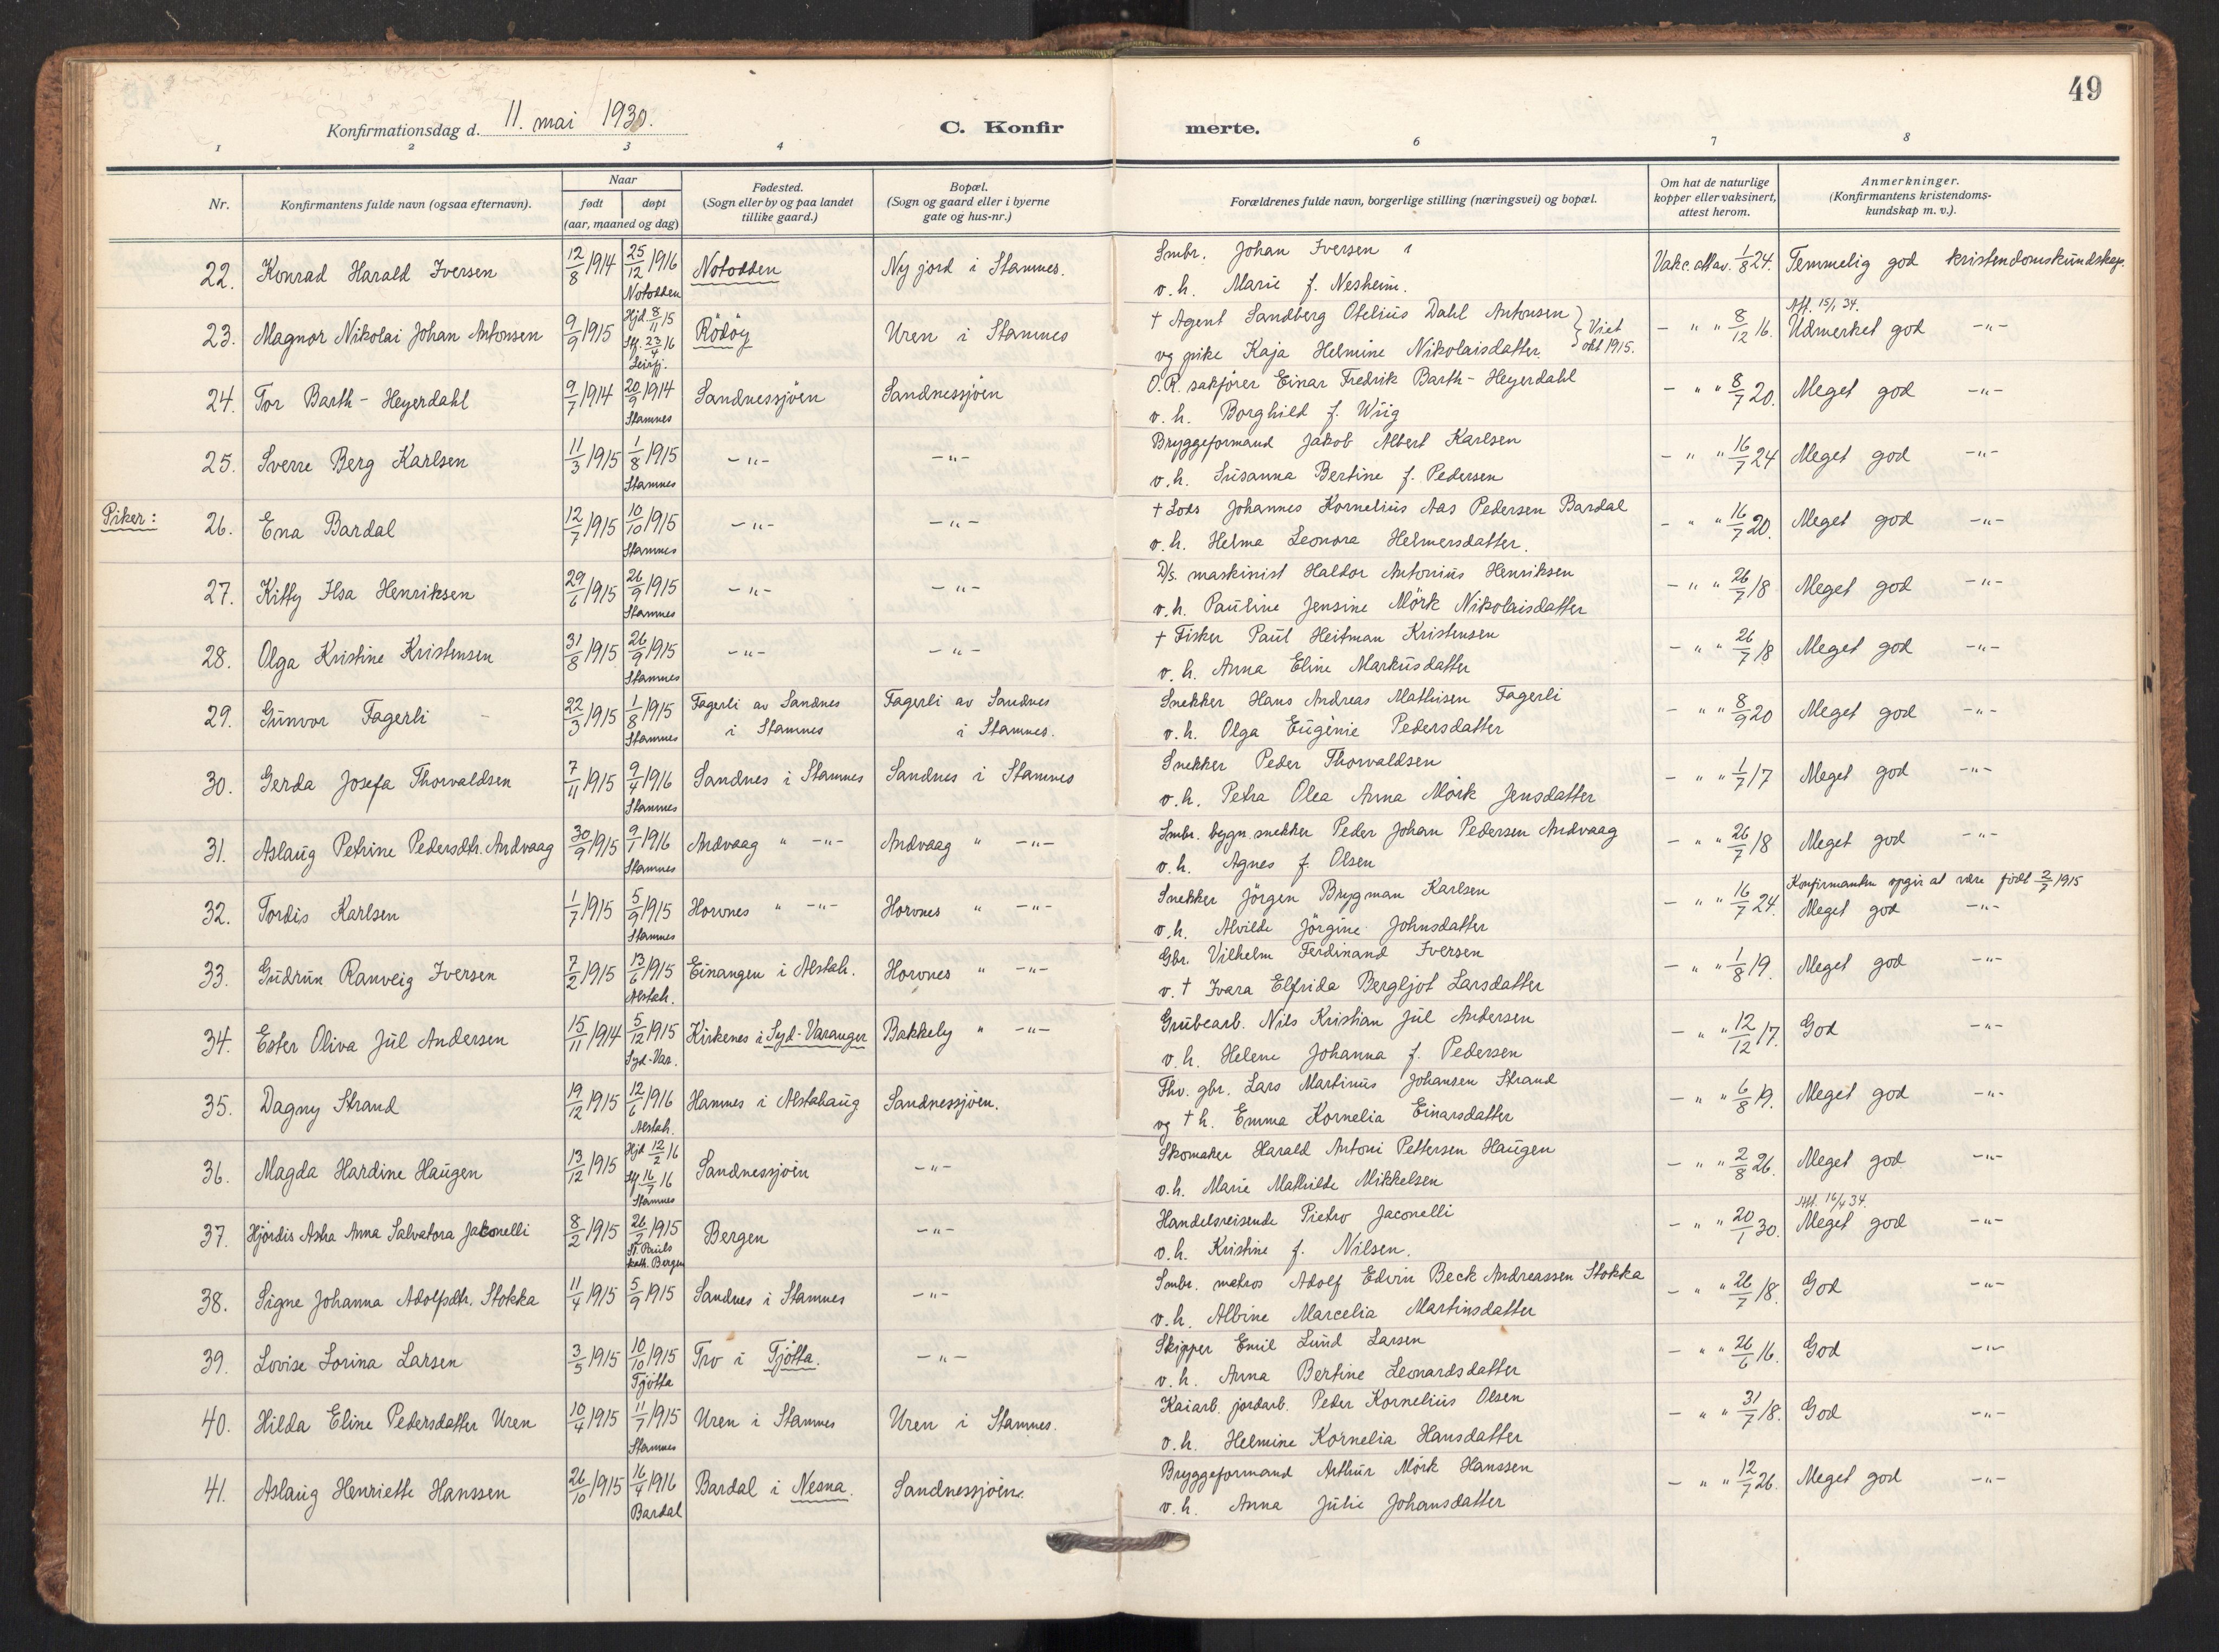 49
Konfirmationsdag d. 11. mai 1930.
C. Konfir merte.
1 2 3 4 6 7 8
Nr. Konfirmantens fulde navn (ogsaa efternavn). Naar født døpt (aar, maaned og dag) Fødested. (Sogn eller by og paa landet tillike gaard.) Bopæl. (Sogn og gaard eller i byerne gate og hus-nr.) Forældrenes fulde navn, borgerlige stilling (næringsvei) og bopæl. Om hat de naturlige kopper eller vaksinert, attest herom. Anmerkninger. (Konfirmantens kristendoms-kundskap m. v.).
22. Konrad Harald Iversen 12/8 1914 25/12 1916 Notodden Notodden Ny jord i Stamnes. Smbr. Johan Iversen Vakc. att av. 1/8 24. Temmelig god kristendomskundskap.
v. h. Marie f. Nesheim.
23. Magnor Nikolai Johan Antonsen 9/9 1915 Hjd. 8/11 15 Stf. 23/4 16 Leirfj. Rödöy Uren i Stamnes † Agent Sandberg Otelius Dahl Antonsen } Viet - " " 8/12 16. Att. 15/1 34. Udmerket god -"-
og pike Kaja Helmine Nikolaisdatter. okt 1915.
24. Tor Barth-Heyerdahl 9/7 1914 20/9 1914 Stamnes Sandnessjöen Sandnessjöen O.R. sakförer Einar Fredrik Barth-Heyerdahl - " " 8/7 20. Meget god -"-
v. h. Borghild f. Wiig
25. Sverre Berg Karlsen 11/3 1915 1/8 1915 Stamnes -"- -"- Bryggeformand Jakob Albert Karlsen - " " 16/7 24 Meget god -"-
v. h. Susanna Bertine f. Pedersen
Piker: 26. Ena Bardal 12/7 1915 10/10 1915 Stamnes -"- -"- † Lods Johannes Kornelius Aas Pedersen Bardal - " " 16/7 20. Meget god -"-
v. h. Helma Leonora Helmersdatter.
27. Kitty Ilsa Henriksen 29/6 1915 26/9 1915 Stamnes -"- -"- D/s. maskinist Haldor Antonius Henriksen - " " 26/7 18 Meget god -"-
v. h. Pauline Jensine Mörk Nikolaisdatter
28. Olga Kristine Kristensen 31/8 1915 26/9 1915 Stamnes -"- -"- † Fisker Paul Heitman Kristensen - " " 26/7 18 Meget god -"-
v. h. Anna Eline Markusdatter
29. Gunvor Fagerli 22/3 1915 1/8 1915 Stamnes Fagerli av Sandnes i Stamnes Fagerli av Sandnes i Stamnes. Snekker Hans Andreas Mathisen Fagerli - " " 8/9 20 Meget god -"-
v. h. Olga Eugenie Pedersdatter
30. Gerda Josefa Thorvaldsen 7/11 1915 9/4 1916 Stamnes Sandnes i Stamnes Sandnes i Stamnes Snekker Peder Thorvaldsen - " " 1/7 17 Meget god -"-
v. h. Petra Olea Anna Mörk Jensdatter
31. Aslaug Petrine Pedersdtr. Andvaag 30/9 1915 9/1 1916 Stamnes Andvaag " -"- Andvaag " -"- Smbr. bygn. snekker Peder Johan Pedersen Andvaag - " " 26/7 18 Meget god -"-
v. h. Agnes f. Olsen
32. Tordis Karlsen 1/7 1915 5/9 1915 Stamnes Horvnes " -"- Horvnes " -"- Snekker Jörgen Brygman Karlsen - " " 16/7 24. Konfirmanten opgir at være födt 2/7 1915 Meget god -"-
v. h. Alvilde Jörgine Johnsdatter
33. Gudrun Ranveig Iversen 7/2 1915 13/6 1915 Alstah. Einangen i Alstah. Horvnes " -"- Gbr. Vilhelm Ferdinand Iversen - " " 1/8 19. Meget god -"-
v. † Ivara Elfrida Bergljot Larsdatter
34. Ester Oliva Jul Andersen 15/11 1914 5/12 1915 Syd-Var. Kirkenes i Syd-Varanger Bakkeby " -"- Grubearb. Nils Kristian Jul Andersen - " " 12/12 17. God -"-
v. h. Helene Johanna f. Pedersen
35. Dagny Strand 19/12 1915 12/6 1916 Alstah. Hamnes i Alstahaug Sandnessjöen. Fhv. gbr. Lars Martinus Johansen Strand - " " 6/8 19. Meget god -"-
og † h. Emma Kornelia Einarsdatter
36. Magda Hardine Haugen 13/12 1915 Hjd 12/2 16 Stf. 16/7 16 Stamnes Sandnessjöen -"- Skomaker Harald Antoni Pettersen Haugen - " " 2/8 26. Meget god -"-
v. h. Marie Mathilde Mikkelsen
37. Hjördis Astra Anna Salvatora Jaconelli 8/2 1915 26/2 1915 St. Pauls kath. Bergen Bergen -"- Handelsreisende Pietro Jaconelli - " " 20/1 30. Att. 16/4 34. Meget god -"-
v. h. Kristine f. Nilsen.
38. Signe Johanna Adolfsdtr. Stokka 11/4 1915 5/9 1915 Sandnes i Stamnes -"- Smbr. matros Adolf Edvin Beck Andreassen Stokka - " 26/7 18. God -"-
v. h. Albine Marcelia Martinsdatter
39. Lovise Lorina Larsen 3/5 1915 10/10 1915 Tjötta Tro i Tjötta. -"- Skipper Emil Lund Larsen - " " 26/6 16. God -"-
v. h. Anna Bertine Leonardsdatter
40. Hilda Eline Pedersdatter Uren 10/4 1915 11/7 1915 Stamnes Uren i Stamnes Uren i Stamnes. Kaiarb. jordarb. Peder Kornelius Olsen - " " 31/7 18. God -"-
v. h. Helmine Kornelia Hansdatter
41. Aslaug Henriette Hanssen 26/10 1915 16/4 1916 Bardal Bardal i Nesna. Sandnessjöen. Bryggeformand Arthur Mörk Hanssen - " " 12/7 26. Meget god -"-
v. h. Anna Julie Johansdatter